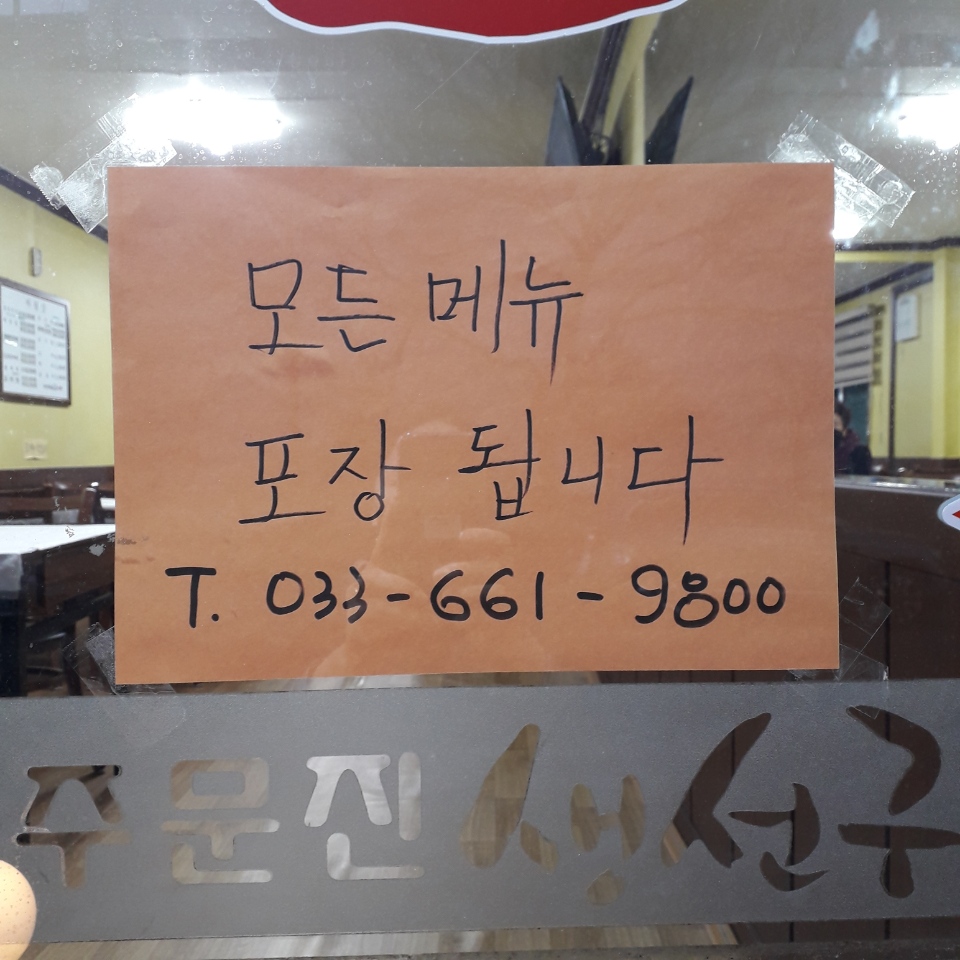 모든 메뉴
포장 됩니다
T. 033-661-9800
주문진 생선구